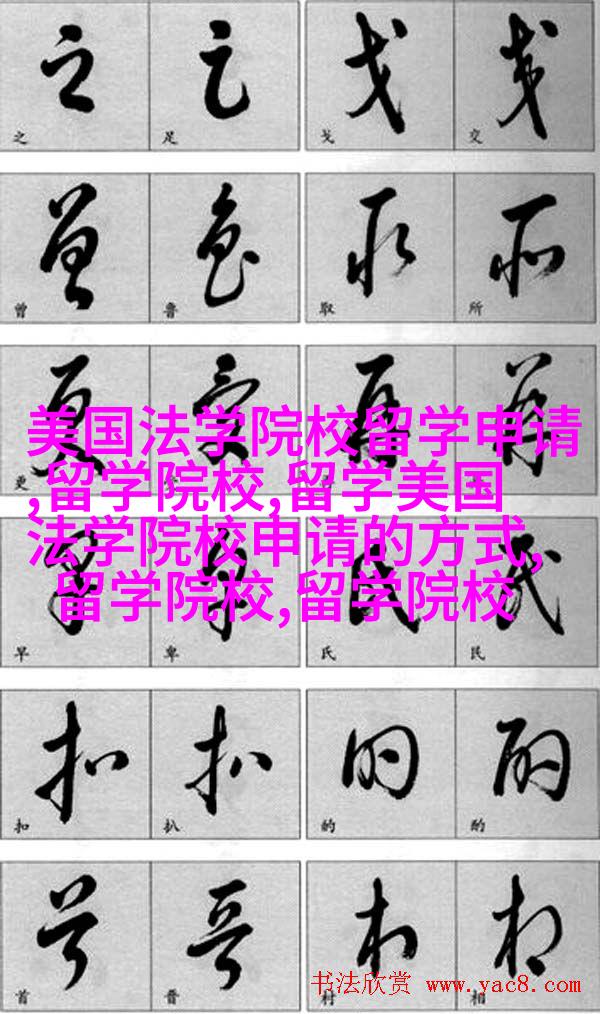 之 足 戈 交
曾 鲁 取 所
更
美国法学院校留学申请
,留学院校,留学美国
法学院校申请的方式,
留学院校,留学院校
早 卑 氏 民
扣 扒 的 酌
首 晋 村 相
书法欣赏 www.yac8.com